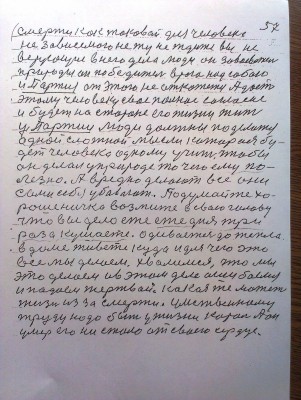 57
смерти как таковой для человека
не зависемого нету не ждите вы не
верующие в него дела люди он завоюет
природу он победител врога над собою
и Партия от этого не откажется А даст
этому человеку свое полное согласие
и будет на стороне его жизни жит
у Партии люди должны подойти
одной мысли которая бу-
дет человека одному учит чтобы
он делал природе то чего ему по-
лезно. А вредно делают все они
сами себя убивают. Подумайте хо-
рошеничко возмите в свою голову
что вы делаете еще дня три
раза кушаете. Одиваетес до тепла
в доме живете куда и для чего это
все мы делаем, хвалимся, что мы
это делаем а в этом деле мы болеем
и падаем жертвой. Какая же может
жизн из за смерти. Умственному
труду надо быт у жизни Карл
умер его ни стало от своего сердца.